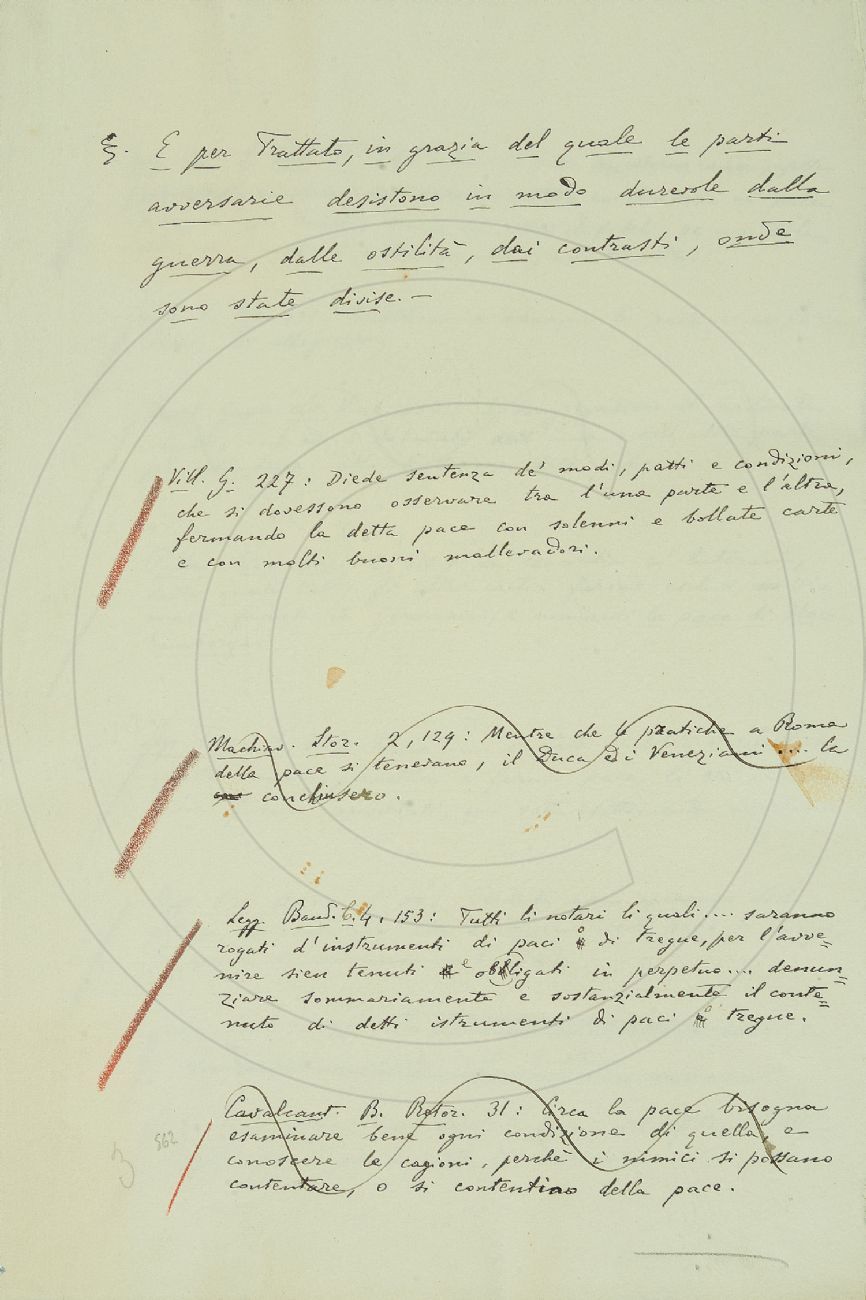 §. E per Trattato, in grazia del quale le parti
avversarie desistono in modo durevole dalla
guerra, dalle ostilità, dai contrasti, onde
sono state divise. —
Vill. G. 227: Diede sentenza de' modi, patti e condizioni,
che si dovessono osservare tra l'una parte e l'altra,
fermando la detta pace con solenni e bollate carte
e con molti buoni mallevadori.
Machiav. Stor. 2, 129: Mentre che le pratiche a Roma
della pace si tenevano, il Duca e i Veneziani .... la
conchiusero.
Legg. Band. C. 4, 153: Tutti li notari li quali .... saranno
rogati d'instrumenti di paci o di tregue, per l'avve=
nire sien tenuti e obbligati in perpetuo .... denun=
ziare sommariamente e sostanzialmente il conte=
nuto di detti istrumenti di paci o tregue.
Cavalcant. B. Retor. 31: Circa la pace bisogna
esaminare bene ogni condizione di quella, e
conoscere le cagioni, perchè i nimici si possano
contentare, o si contentino della pace.
3 562